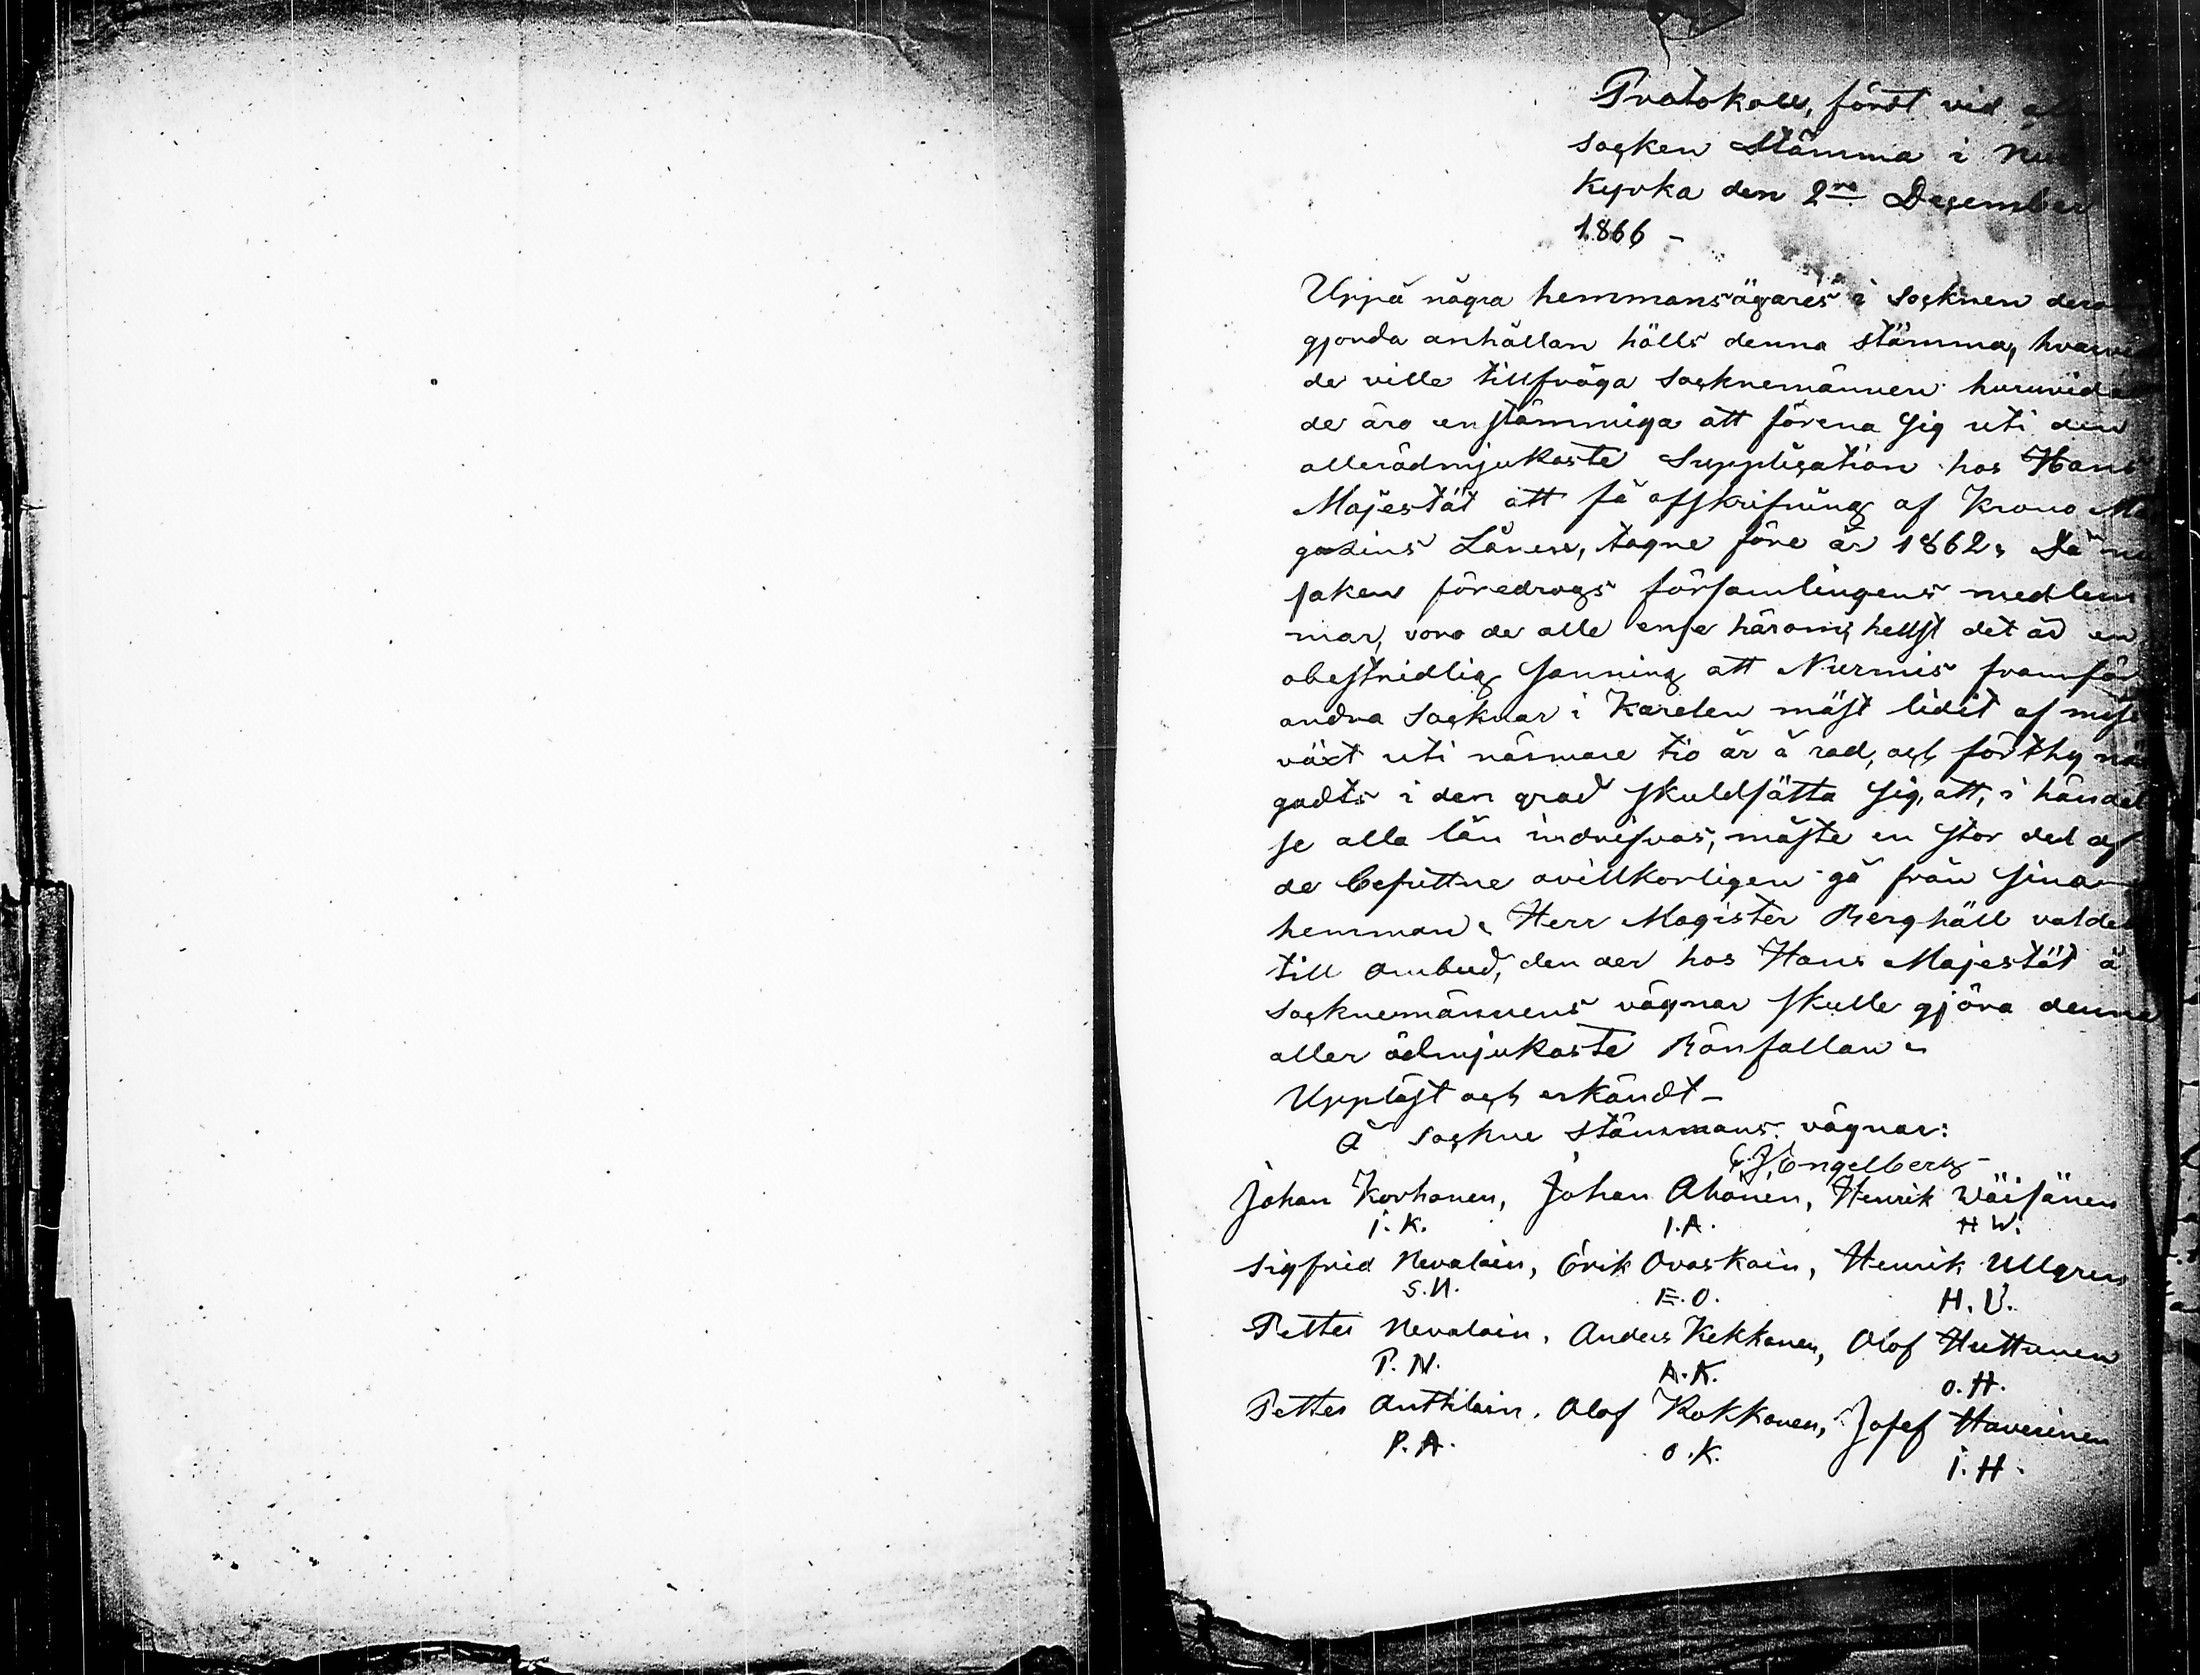 Protokoll, fördt vid
socken Stämma i
Kyrka den 2ra December
1866 –
Uppå några hemmansägares i socknen
gjorda anhållan hölls denna stämma,
de ville tillfråga socknemännen huruvida
de äro enstämmiga att förena sig uti den
allerödmjukaste Supplication hos Hans
Majestät att få afskrifning af Krono Ma
gazins Lånen, tagne före år 1862. Då nu
saken föredrogs församlingens medlem
mar, voro de alle ense härom, hellst det är en
obestridlig sanning att Nurmis framför
andra socknar i Karelen mäst lidit af miss
växt uti närmare tio år å rad, och förthy nöd
gadts i den grad skuldsätta sig, att, i händel
se alla lån indrifvas, måste en stor del af
de besuttne ovillkorligen gå från sina
hemman. Herr Magister Berghäll valdes
till ombud, den der hos Hans Majestät å
socknemännens vägnar skulle gjöra denna
aller ödmjukaste Bönfallan.
Uppläst och erkändt –
å Sockne stämmans vägnar:
C.J. Engelberg
Johan Korhonen, Johan Ahonen, Henrik Wäisänen
I.K. I.A. H W.
Sigfrid Nevalain, Erik Ovaskain, Henrik Ullgren
S.N. E.O. H.U.
Petter Nevalain, Anders Kekkonen, Olof Huttunen
P.N. A.K. O.H.
Petter Anttilain, Olof Kokkonen, Josef Haverinen
P.A. O.K. I.H.